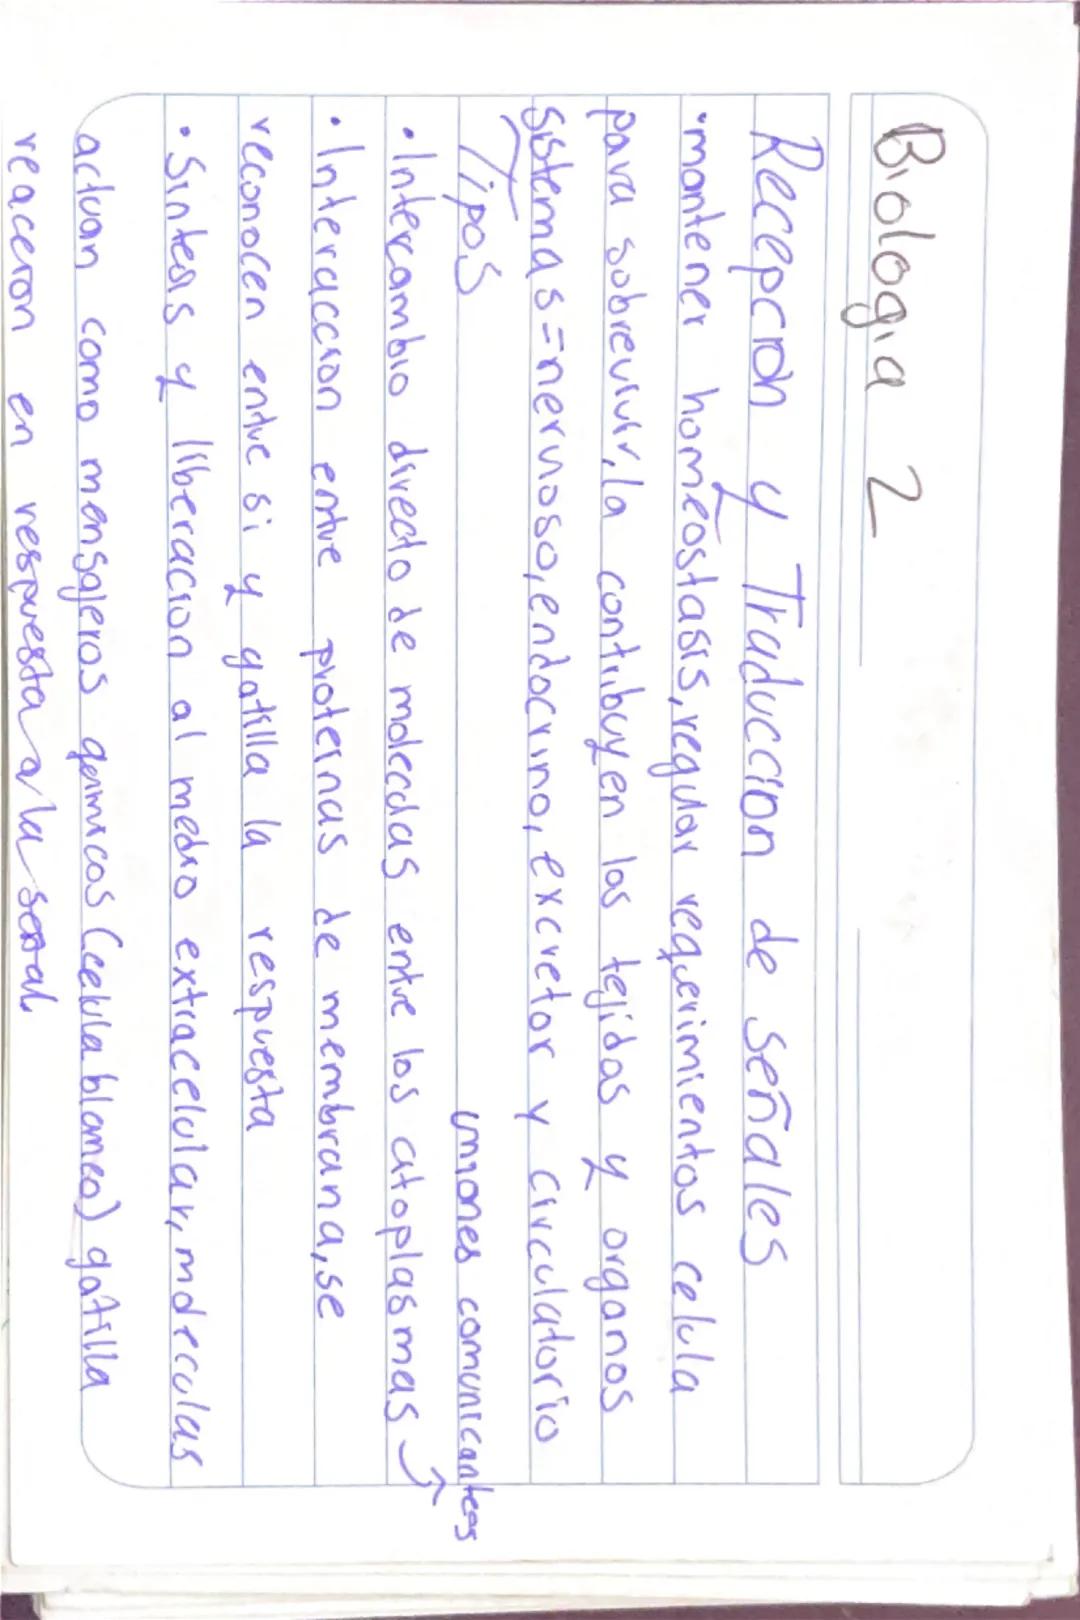 Biologia 2
Recepcion y Traduccion de señales
•mantener homeostasis, regular requerimientos celula
para sobrevivir, la contribuyen los tejidos y organos
sistemas=nervioso, endocrino, excretor y circulatorio
Tipos
uniones comunicantes
• Intercambio directo de moleculas entre los citoplasmas
• Interaccion entre proteinas de membrana, se
reconocen entre si y gatilla la respuesta
• Sintesis y liberacion al medio extracelular, moleculas
actuan como mensajeros quimicos (celula blanco) gatilla
reaccion en respuesta a la señal.